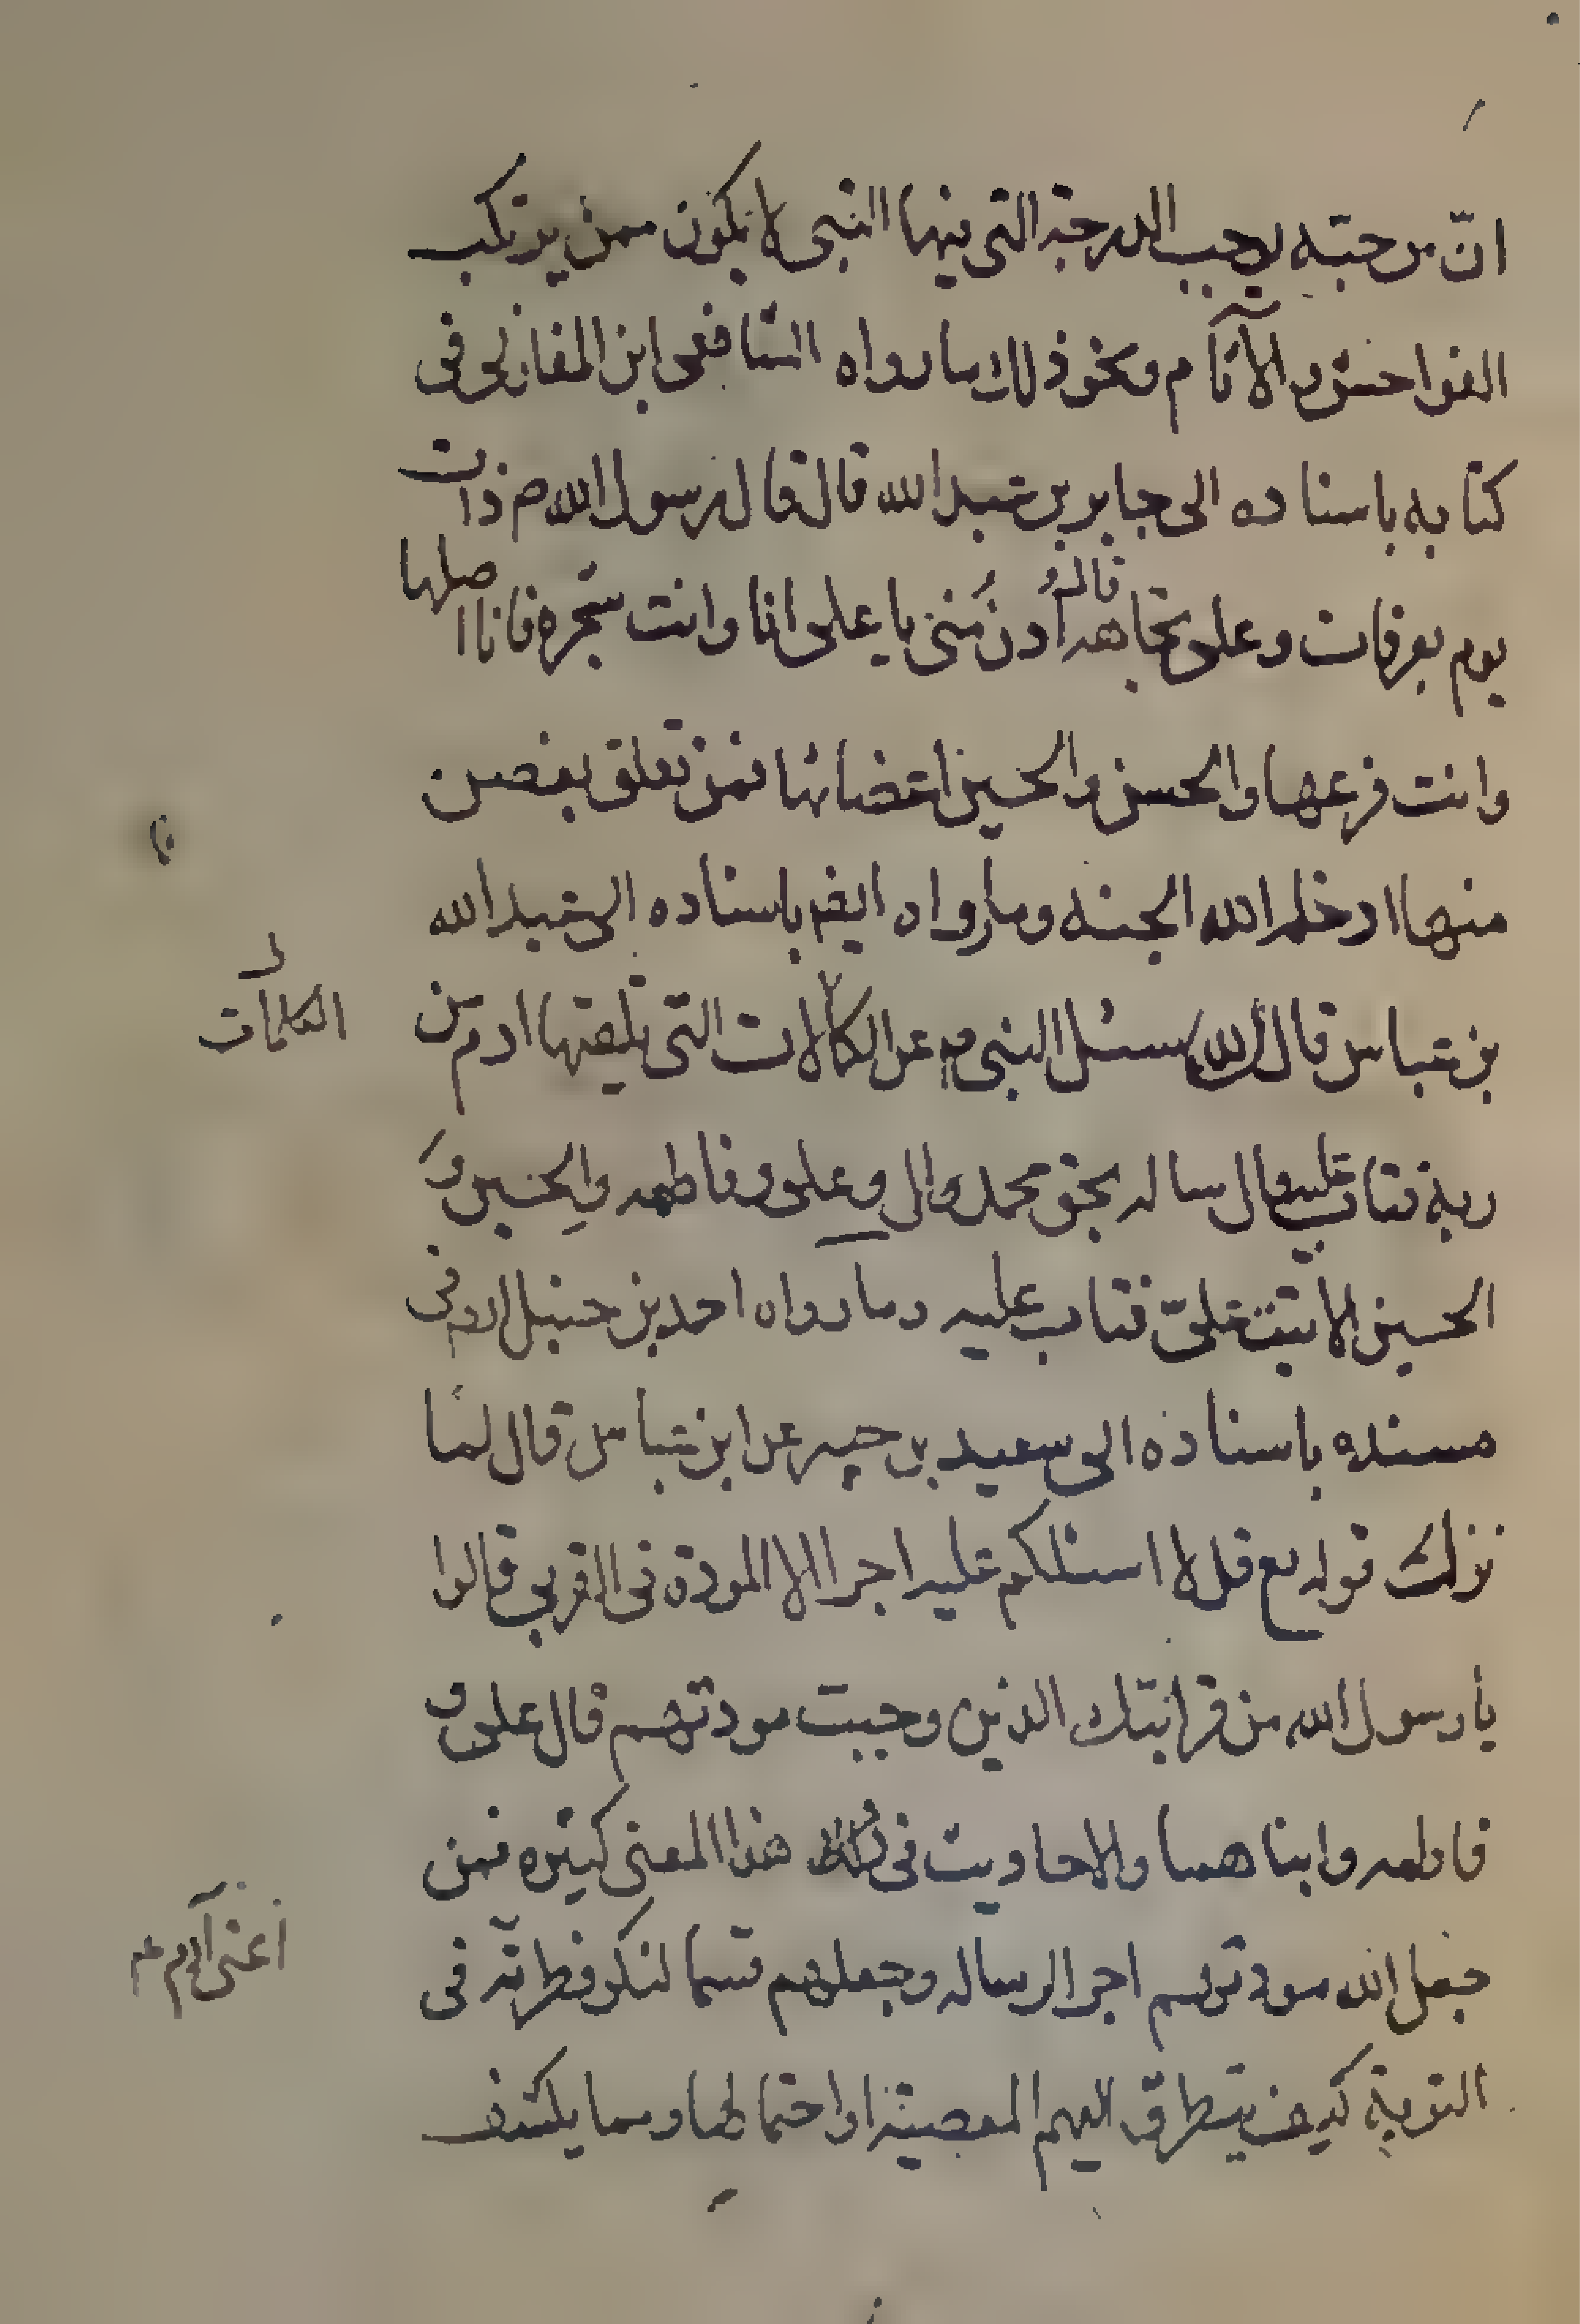 انّ من حبّه يوجب الدرجة التي فيها النبي لا يكون ممن يرتكب
الفواحش والآثام ونحو ذلك ما رواه الشافعي ابن المغازلي في
كتابه باسناده الى جابر بن عبد الله قال قال رسول الله ص ذات
يوم بعرفات وعلى تجاهه قال أُدنُ مُني يا على انا وانت شجره فانا اصلها
وانت فرعها والحسن والحسين اعضانها فمن تعلق بغصن
منها ادخله الله الجنه وما رواه ايضا باسناده الى عبد الله
بن عباس قال سئل النبي ص عن الكلات التي تلقيها ادم من
ربة فتاب عليه قال ساله بحق محمد وال وعلى وفاطمه والحسن و
الحسين الا تبت علىّ فتاب عليه وما رواه احمد بن حنبل في
مسنده باسناده الى سعيد بن جبير عن ابن عباس قال لما
نزلت قوله تع قل لا اسئلكم عليه اجرا الا المودة في القربى قالوا
يا رسول الله من قرابتك الذين وجبت مودتهم قال على و
فاطمه وابناهما والاحاديث في هذا المعنى كثيره فمن
جعل الله مودتهم اجر الرساله وجعلهم قسما لذكر فطراته في
التوبة كيف يتطرق اليهم المعصية او احتمالها ومما يكشف
الكلمات
أعنى آدم عم